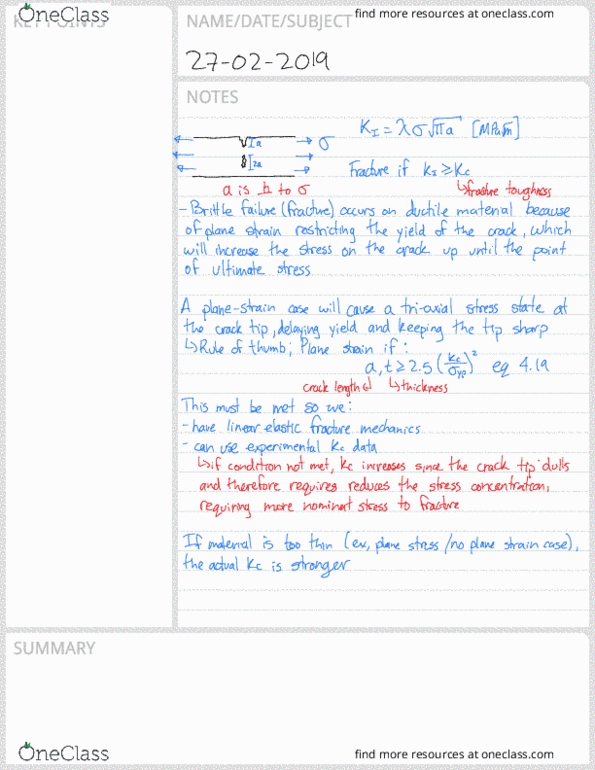 OneClass
KEY POINTS
NAME/DATE/SUBJECT
find more resources at oneclass.com
27-02-2019
NOTES
K_I = λσ√πa [MPa√m]
Ia
I2a
σ
Fracture if K_I ≥ K_c
↳ fracture toughness
a is h to σ
- Brittle failure (fracture) occurs on ductile material because
of plane strain restricting the yield of the crack, which
will increase the stress on the crack up until the point
of ultimate stress
A plane-strain case will cause a tri-axial stress state at
the crack tip, delaying yield and keeping the tip sharp
↳ Rule of thumb; Plane strain if:
a, t ≥ 2.5 (K_c/σ_yp)² eq 4.19
crack length ↲ ↳ thickness
This must be met so we:
- have linear elastic fracture mechanics
- can use experimental K_c data
↳ if condition not met, K_c increases since the crack tip dulls
and therefore requires reduces the stress concentration,
requiring more nominal stress to fracture
If material is too thin (ex, plane stress / no plane strain case),
the actual K_c is stronger
SUMMARY
OneClass
find more resources at oneclass.com